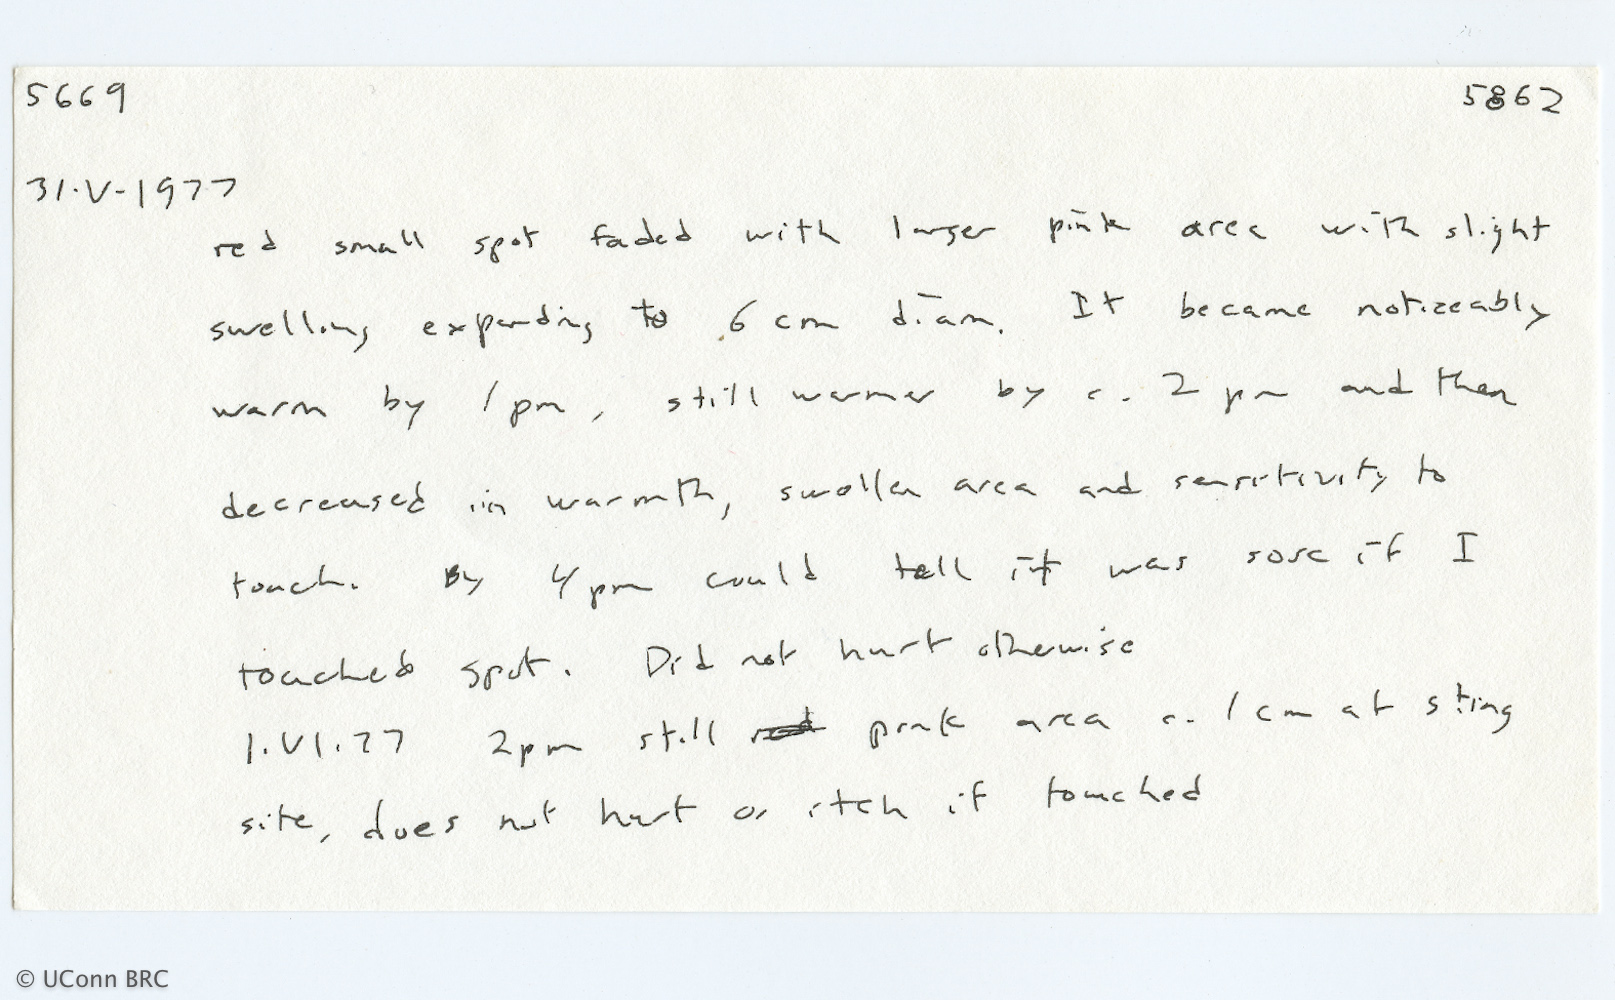 5669 5862
31·V-1977
red small spot faded with larger pink area with slight
swelling expanding to 6 cm diam. It became noticeably
warm by 1pm, still warmer by c. 2 pm and then
decreased in warmth, swollen area and sensitivity to
touch. By 4pm could tell it was sore if I
touched spot. Did not hurt otherwise
1.VI.77 2pm still red pink area c. 1cm at sting
site, does not hurt or itch if touched
© UConn BRC